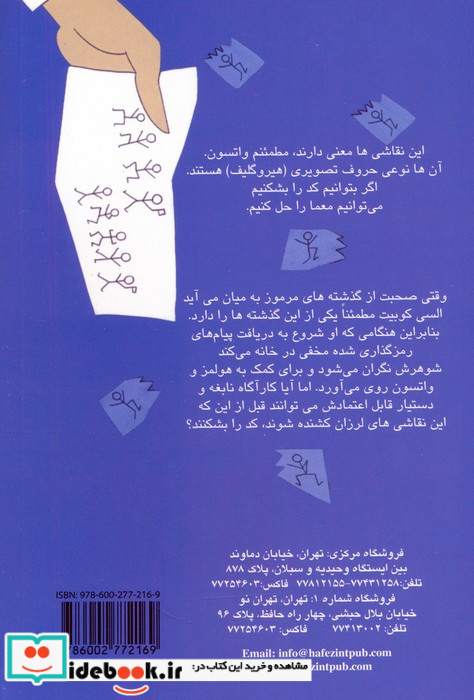 این نقاشی ها معنی دارند، مطمئنم واتسون.
آن ها نوعی حروف تصویری (هیروگلیف) هستند.
اگر بتوانیم کد را بشکنیم
می‌توانیم معما را حل کنیم.
وقتی صحبت از گذشته های مرموز به میان می آید
السی کوبیت مطمئناً یکی از این گذشته ها را دارد.
بنابراین هنگامی که او شروع به دریافت پیام‌های
رمزگذاری شده مخفی در خانه می‌کند
شوهرش نگران می‌شود و برای کمک به هولمز و
واتسون روی می‌آورد. اما آیا کارآگاه نابغه و
دستیار قابل اعتمادش می توانند قبل از این که
این نقاشی های لرزان کشنده شوند، کد را بشکنند؟
فروشگاه مرکزی: تهران، خیابان دماوند
بین ایستگاه وحیدیه و سبلان، پلاک ۸۷۸
تلفن: ۷۷۴۳۱۲۵۸-۷۷۸۱۲۱۵۵ فاکس: ۷۷۲۵۴۶۰۳
فروشگاه شماره ۱: تهران، تهران نو
خیابان بلال حبشی، چهار راه حافظ، پلاک ۹۶
تلفن: ۷۷۴۱۳۰۰۲ فاکس: ۷۷۲۵۴۶۰۳
Email: info@hafezintpub.com
ISBN: 978-600-277-216-9
786002772169
مشاهده و خرید این کتاب در:
idebook.ir